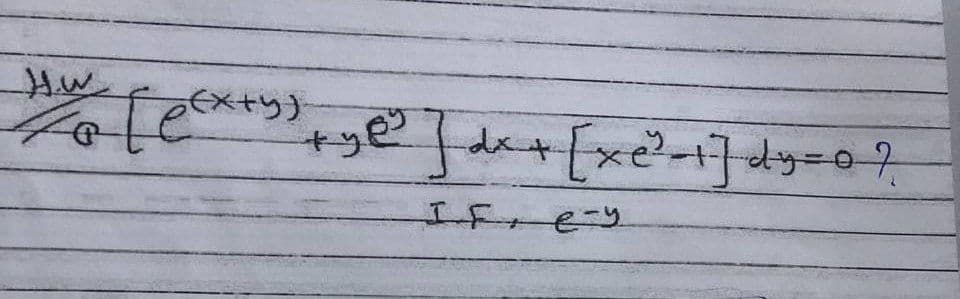 H.W
① [e^(x+y) + ye^y] dx + [xe^y - 1] dy = 0 ?
I.F, e^-y